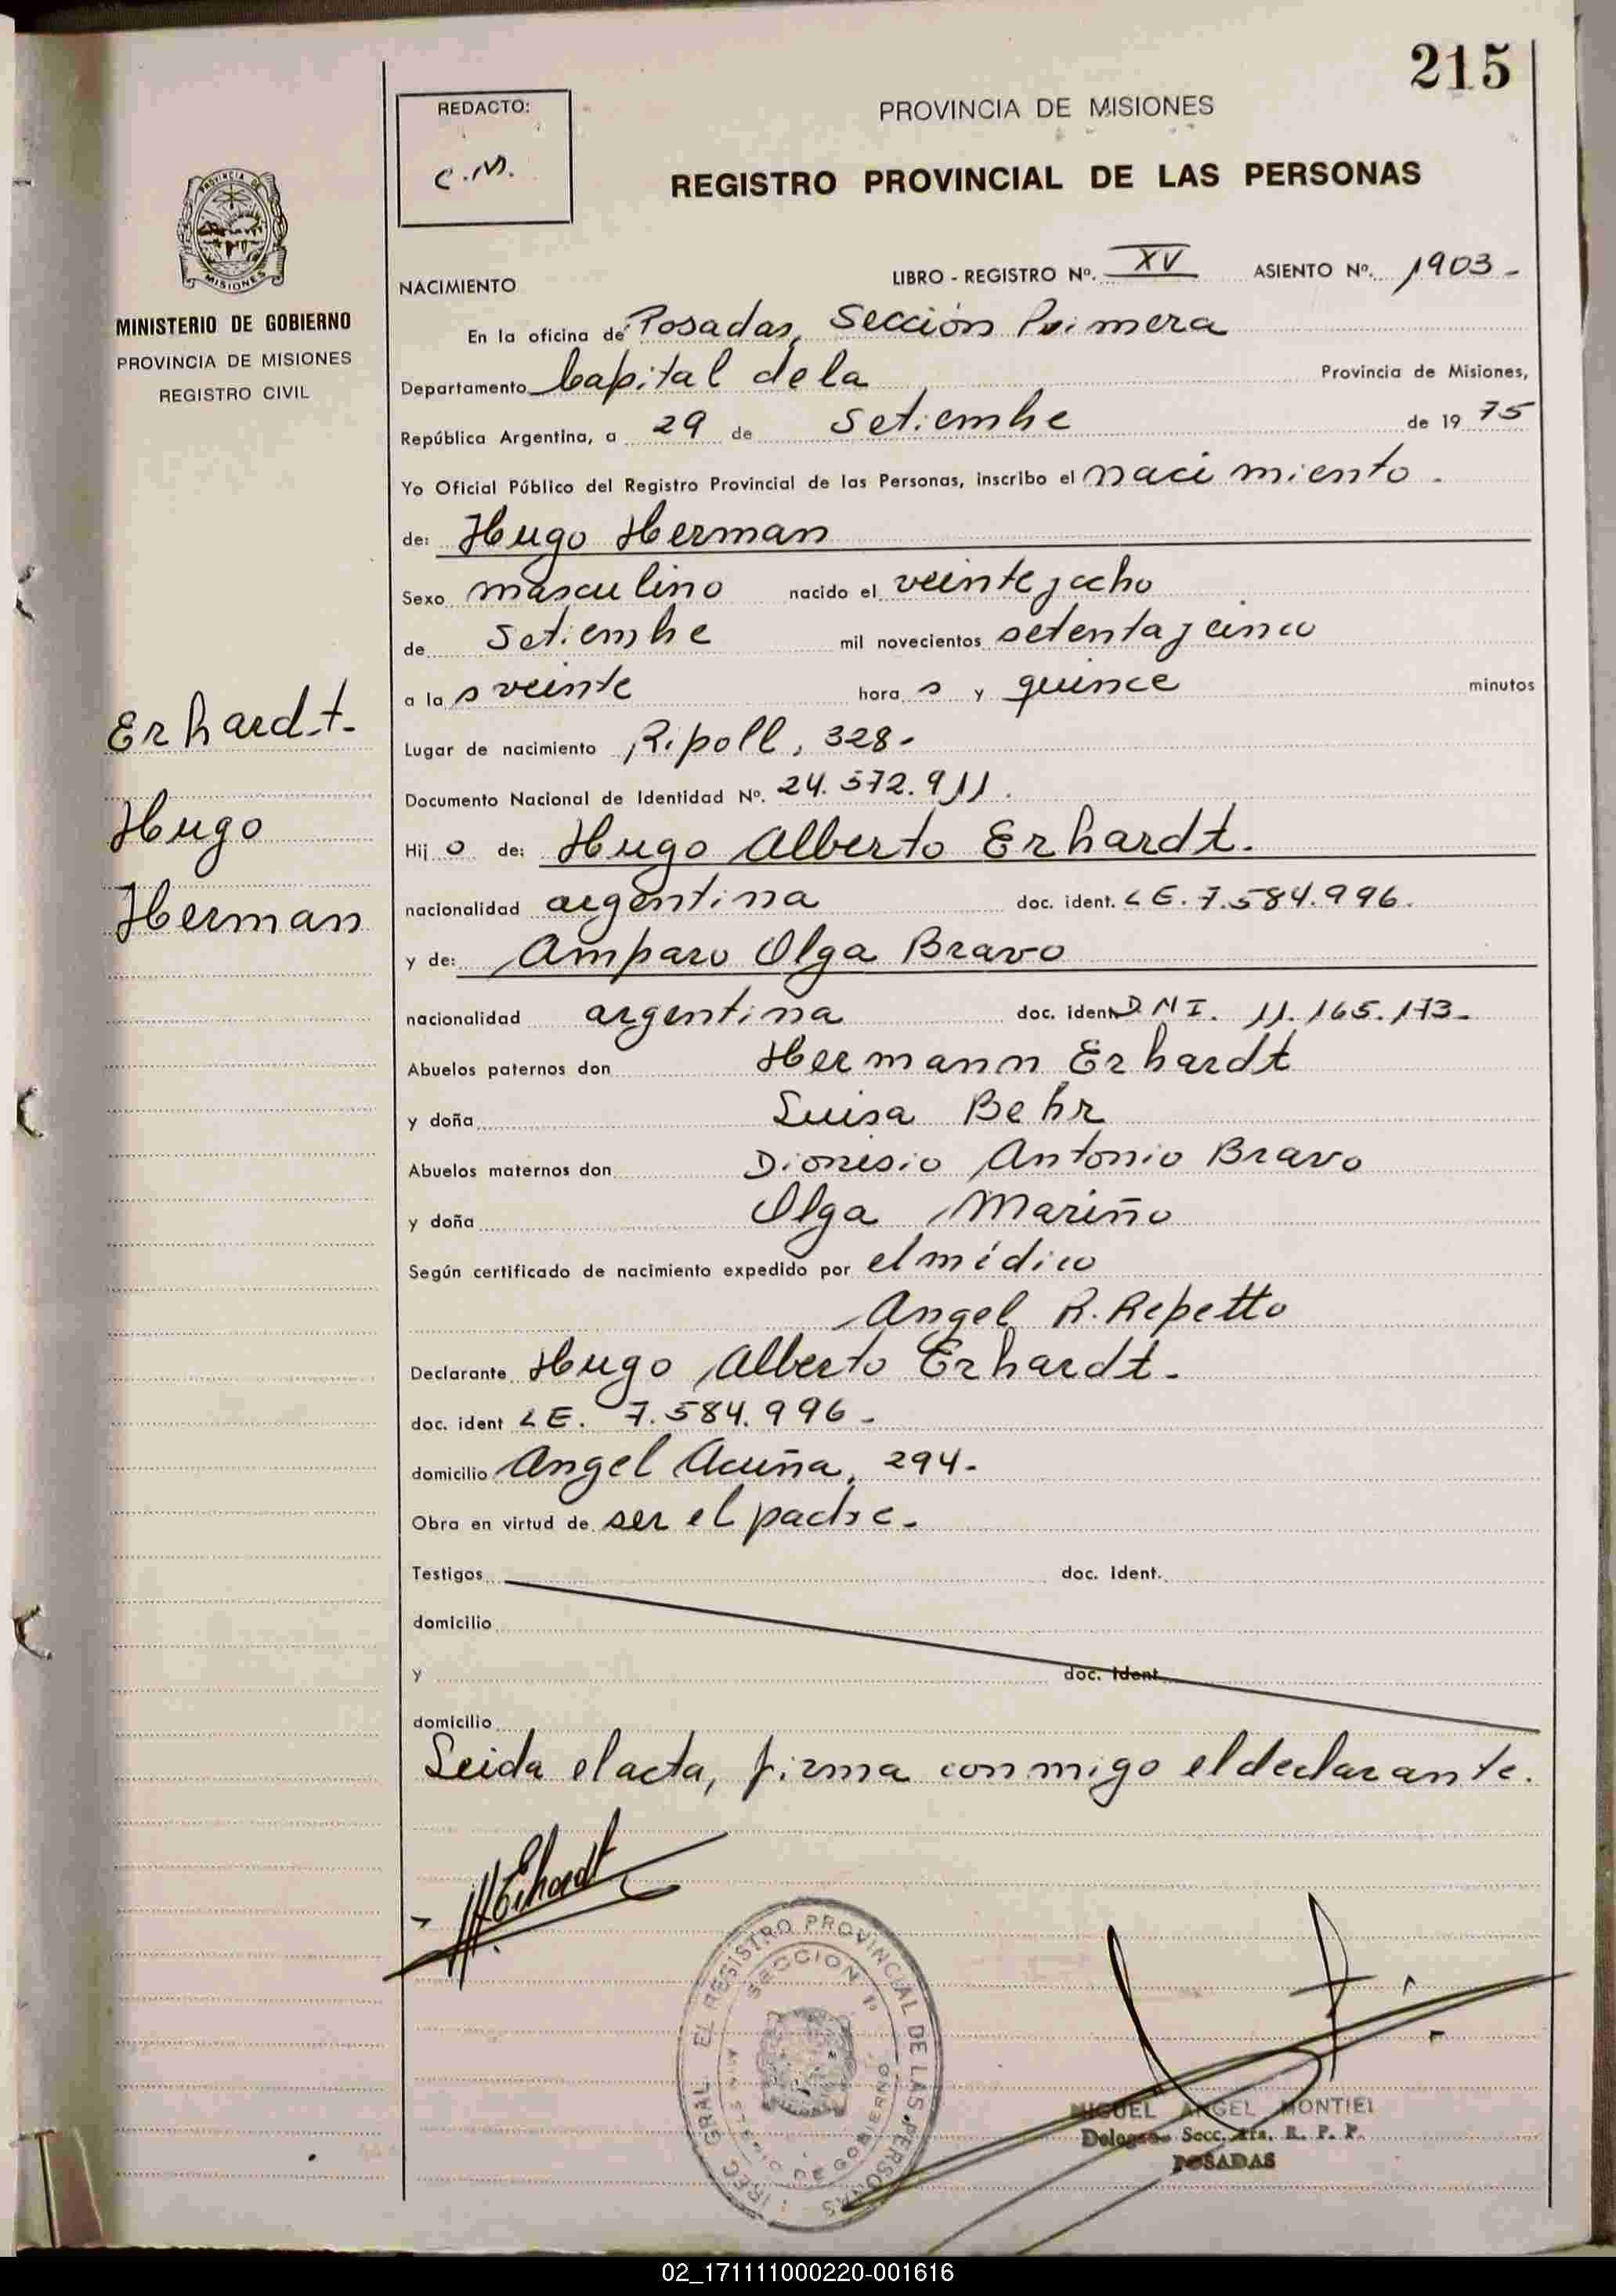 215
REDACTO:
C.M.
PROVINCIA DE MISIONES
REGISTRO PROVINCIAL DE LAS PERSONAS
PROVINCIA DE
MISIONES
MINISTERIO DE GOBIERNO
PROVINCIA DE MISIONES
REGISTRO CIVIL
NACIMIENTO LIBRO - REGISTRO Nº. XV ASIENTO Nº. 1903 -
En la oficina de Posadas, Sección Primera
Departamento Capital de la Provincia de Misiones,
República Argentina, a 29 de Setiembre de 19 75
Yo Oficial Público del Registro Provincial de las Personas, inscribo el nacimiento.
de: Hugo Herman
Sexo masculino nacido el veinte y ocho
de Setiembre mil novecientos setenta y cinco
a la s veinte hora s y quince minutos
Lugar de nacimiento Ripoll, 328.
Documento Nacional de Identidad Nº. 24.572.911.
Hij o de: Hugo Alberto Erhardt.
nacionalidad argentina doc. ident. LE. 7.584.996.
y de: Amparo Olga Bravo
nacionalidad argentina doc. ident DNI. 11.165.173-
Abuelos paternos don Hermann Erhardt
y doña Luisa Behr
Abuelos maternos don Dionisio Antonio Bravo
y doña Olga Mariño
Según certificado de nacimiento expedido por el médico
Angel R. Repetto
Declarante Hugo Alberto Erhardt.
doc. ident LE. 7.584.996.
domicilio Angel Acuña, 294.
Obra en virtud de ser el padre.
Testigos doc. ident.
domicilio
y doc. ident
domicilio
Leida el acta, firma conmigo el declarante.
Erhardt.
Hugo
Herman
HErhardt
REGISTRO PROVINCIAL DE LAS PERSONAS
SECCION 1ª
MINISTERIO DE GOBIERNO
MIGUEL ANGEL MONTIEL
Delegado Secc. 1ra. R. P. P.
POSADAS
02_171111000220-001616